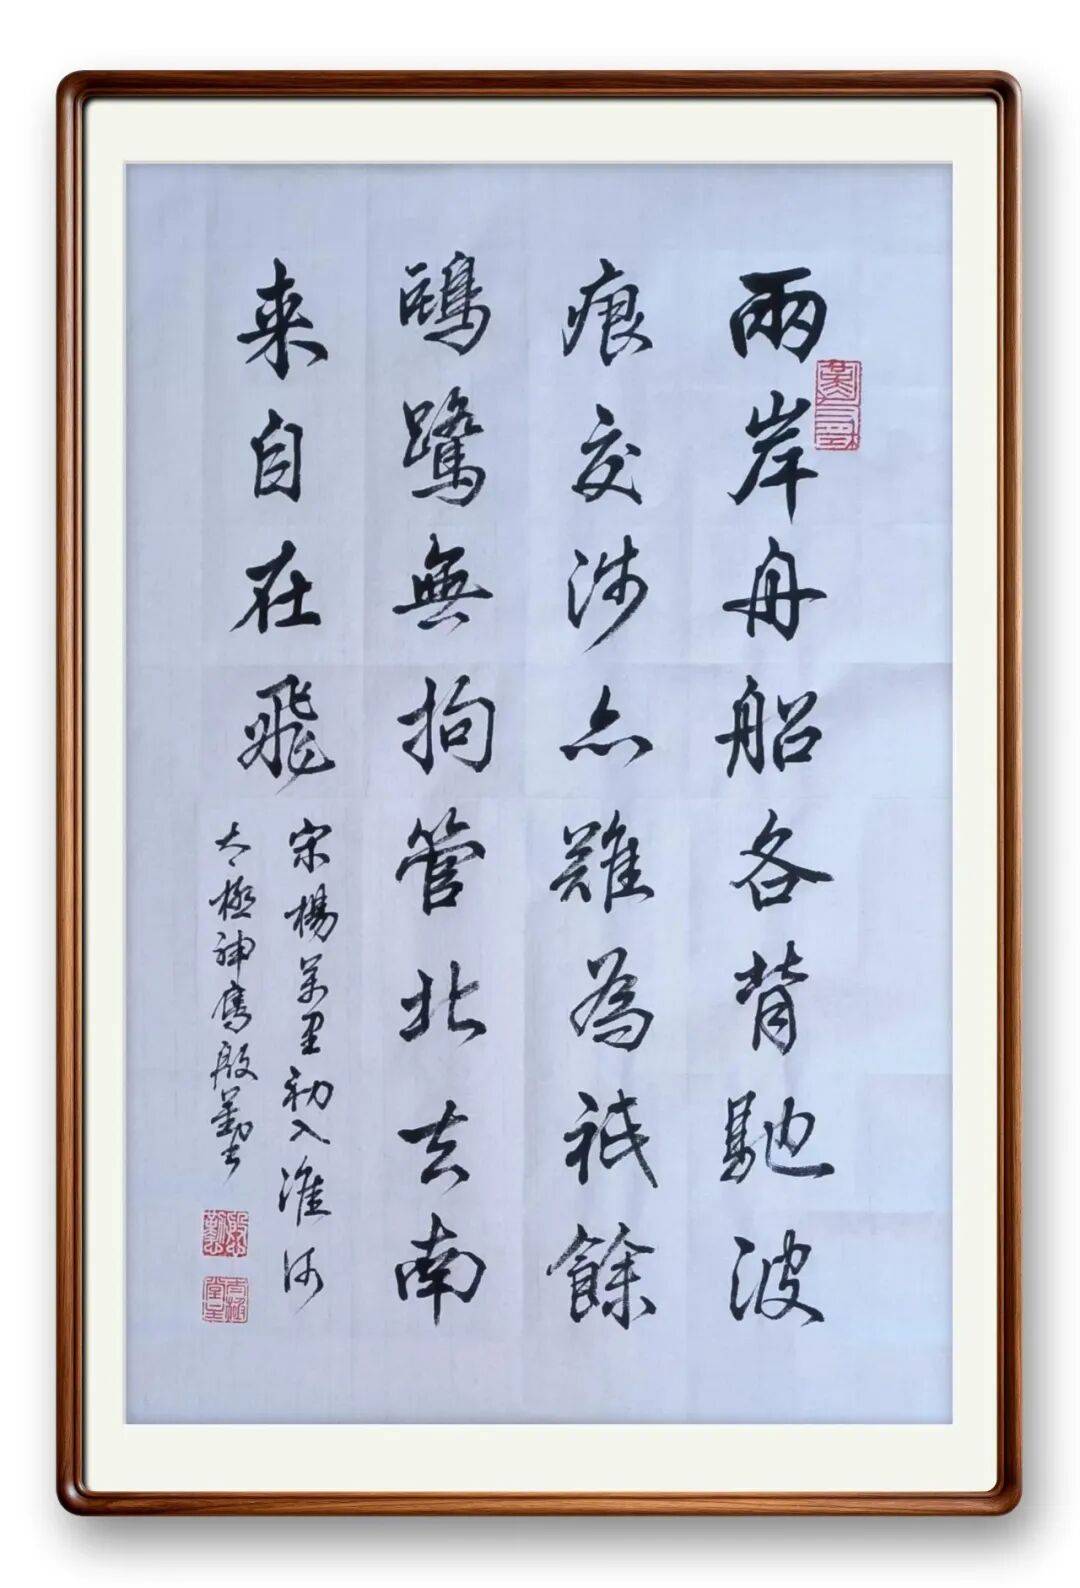 兩岸舟船各背馳波
痕交涉亦難為祇餘
鷗鷺無拘管北去南
来自在飛
宋楊萬里初入淮河
太極神鷹殷勤
殷勤
太極堂主